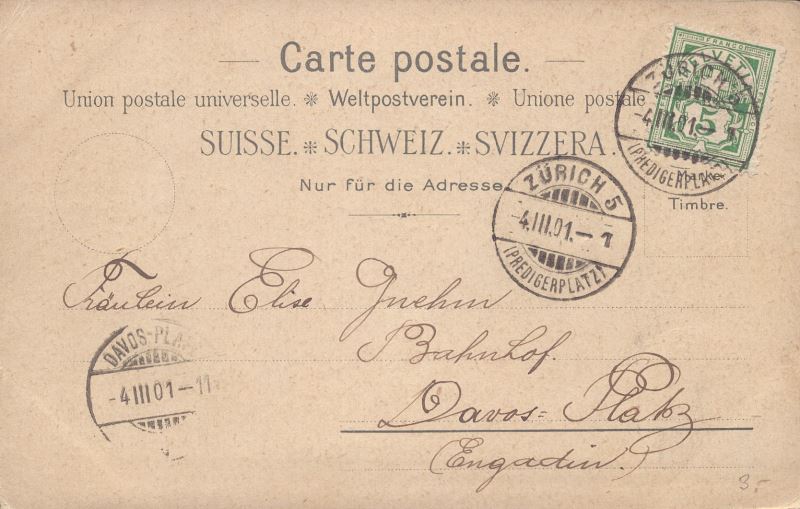 Carte postale.
Union postale universelle. * Weltpostverein. * Unione postale
SUISSE. * SCHWEIZ. * SVIZZERA.
Nur für die Adresse.
FRANCO
HELVETIA
5
ZÜRICH 5
-4.III.01.-7
(PREDIGERPLATZ)
Marke.
Timbre.
ZÜRICH 5
-4.III.01.-7
(PREDIGERPLATZ)
Fräulein Elise Gnehm
Bahnhof.
Davos-Platz
(Engadin.)
DAVOS-PLA
-4 III 01-11
3.-